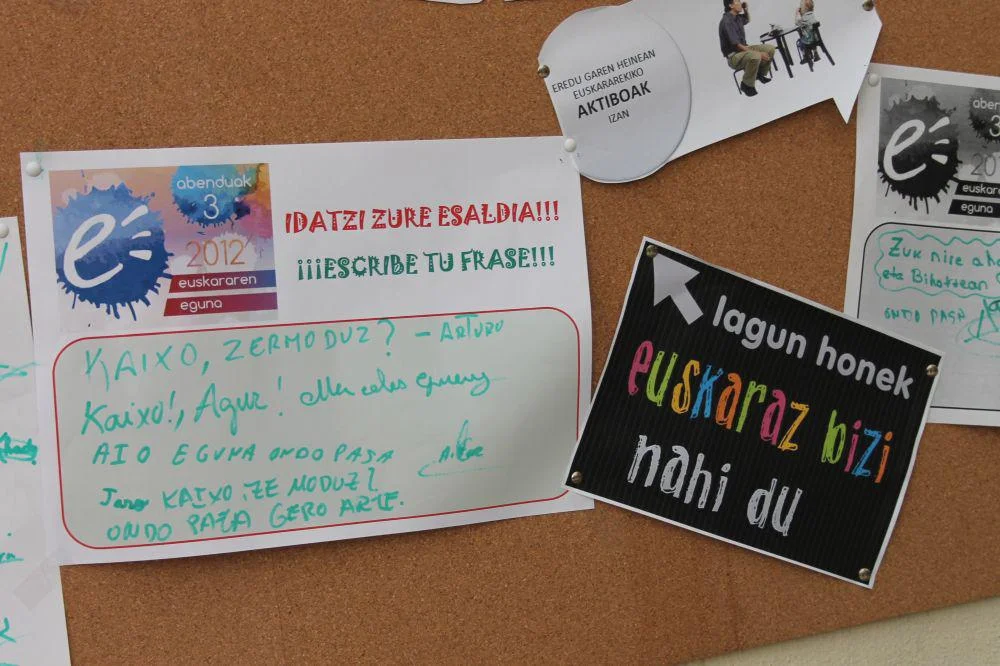 EREDU GAREN HEINEAN
EUSKARAREKIKO
AKTIBOAK
IZAN
e
abenduak
3
2012
euskararen
eguna
IDATZI ZURE ESALDIA!!!
¡¡¡ESCRIBE TU FRASE!!!
KAIXO, ZERMODUZ? - ARTURO
Kaixo!, Agur! Mercedes
AIO EGUNA ONDO PASA
KAIXO ZE MODUZ?
ONDO PASA GERO ARTE.
lagun honek
euskaraz bizi
nahi du
e
3
eguna
Zuk nire
eta Bihotzean
ONDO PASA